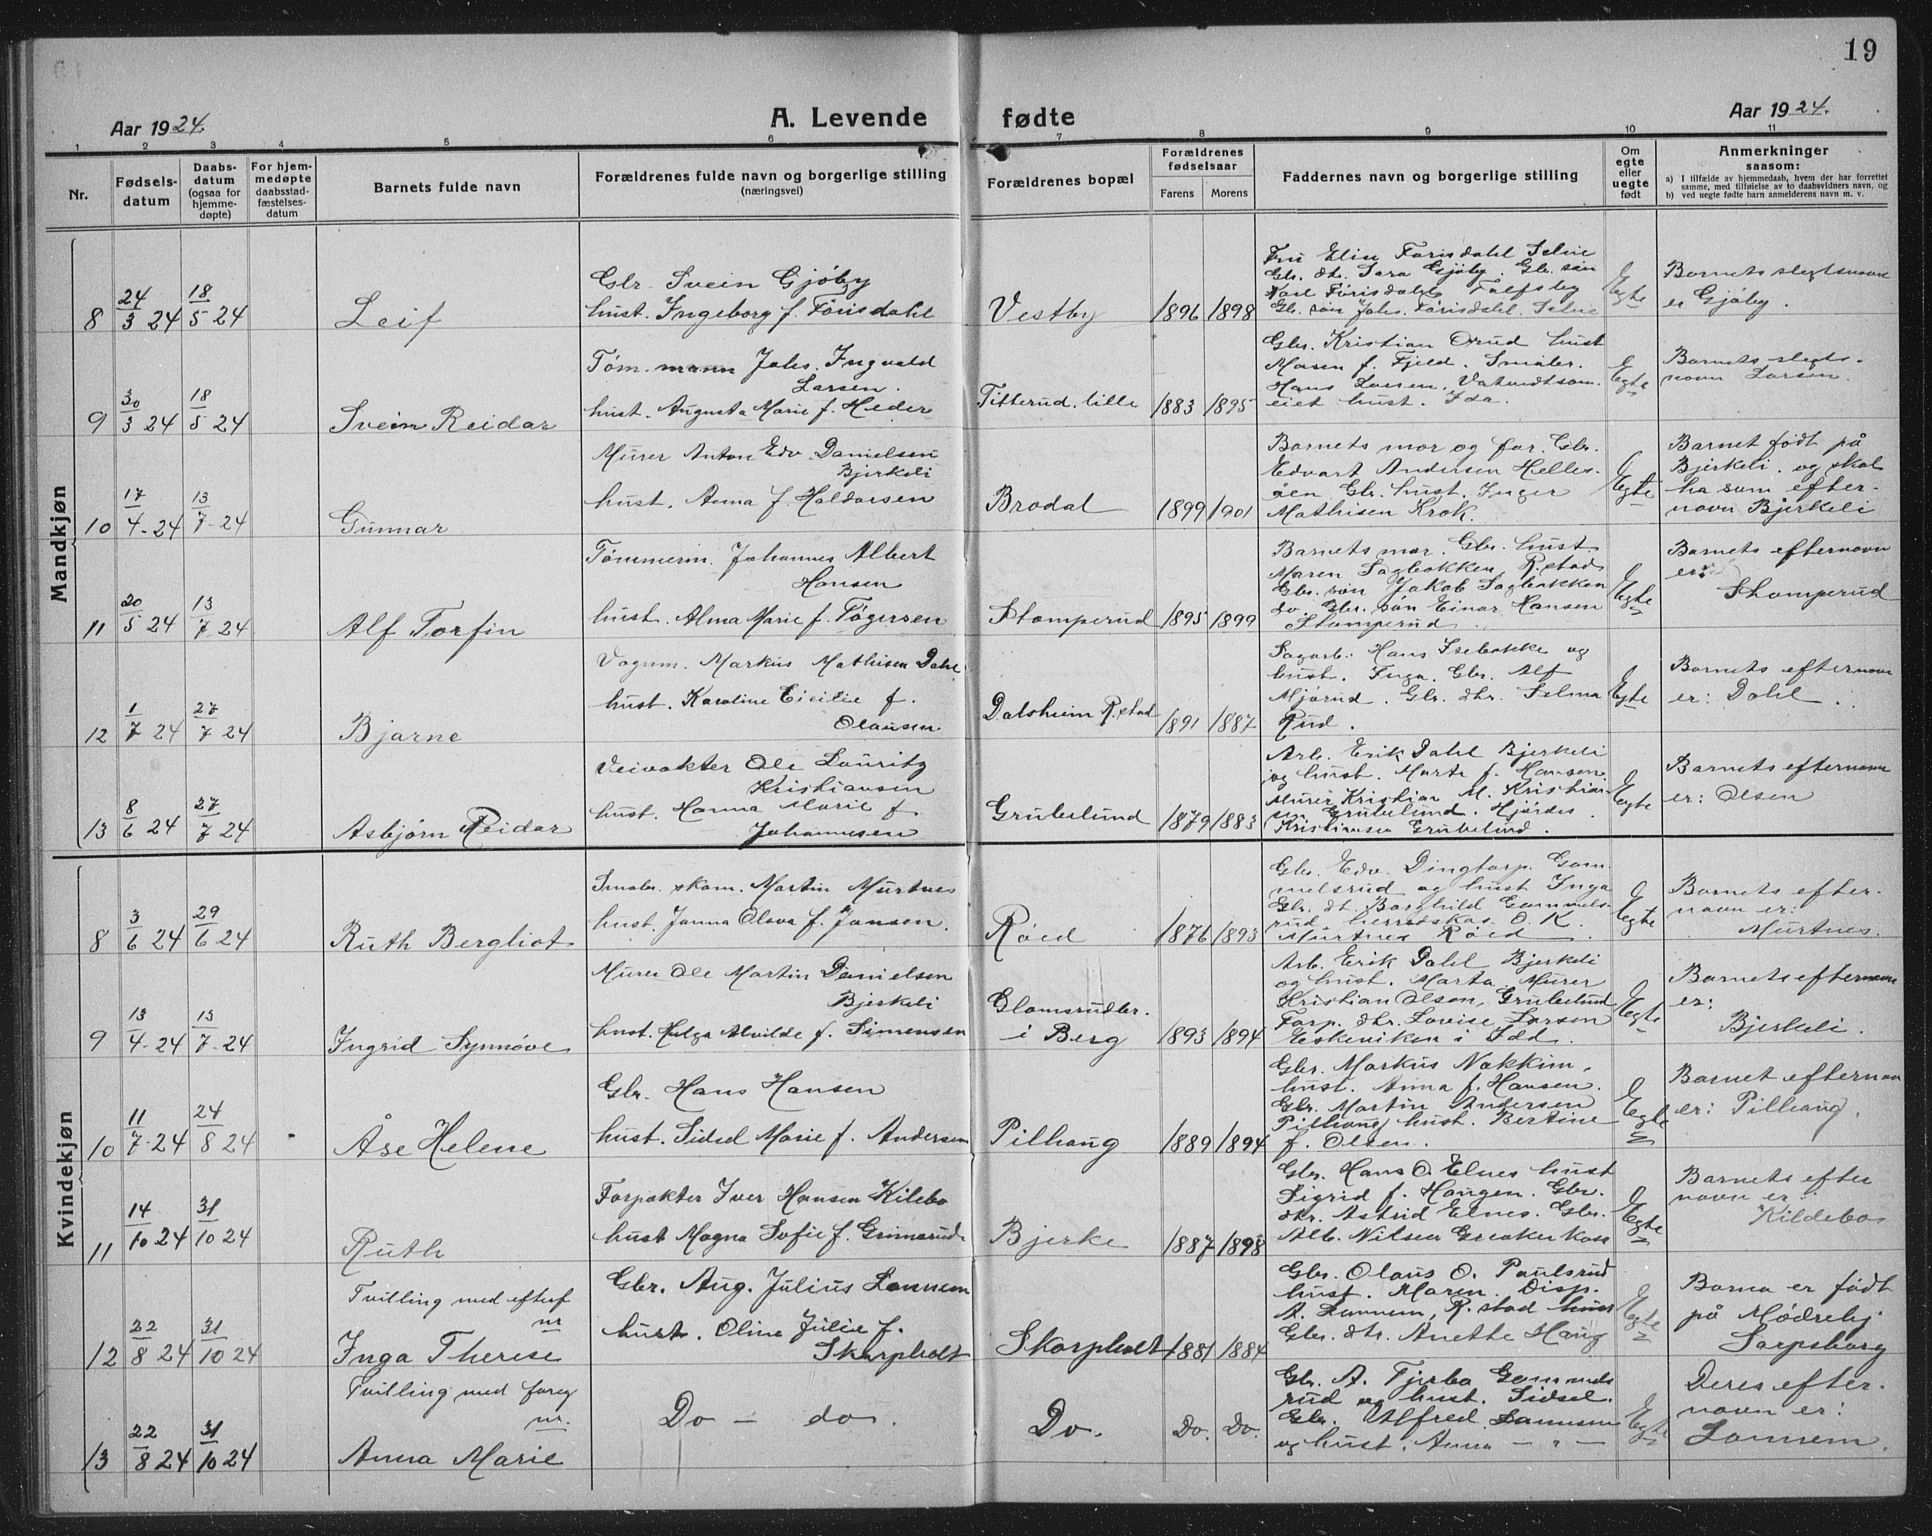 19
Aar 1924.
A. Levende fødte
Aar 1924.
1 2 3 4 5 6 7 8 9 10 11
Nr.
Fødsels-
datum
Daabs-
datum
(ogsaa for
hjemme-
døpte)
For hjem-
medøpte
daabsstad-
fæstelses-
datum
Barnets fulde navn
Forældrenes fulde navn og borgerlige stilling
(næringsvei)
Forældrenes bopæl
Forældrenes
fødselsaar
Farens Morens
Faddernes navn og borgerlige stilling
Om
egte
eller
uegte
født
Anmerkninger
saasom:
a) I tilfælde av hjemmedaab, hvem der har forrettet
samme, med tilføielse av to daabsvidners navn, og
b) ved uegte fødte barn anmelderens navn m. v.
Mandkjøn
8
24/3 24
18/5 24
Leif
Gbr. Svein Gjøby
hust. Ingeborg f. Tørisdahl
Vestby
1896 1898
Gbr. dtr. Sara Gjøby. Gbr. søn
Egte
Barnets slegtsnavn
er Gjøby.
9
30/3 24
18/5 24
Svein Reidar
Tøm.mann Johs. Ingvald
Larsen.
hust. Augusta Marie f. Heder
Titterud. lille
1883 1895
Gbr. Kristian Ørud hust
Maren f. Fjeld. Smaabr.
Hans Larsen,
eiet hust. Ida.
Egte
Barnets slegts-
navn Larsen.
10
17/4-24
13/7-24
Gunnar
Murer Anton Edv. Danielsen
Bjerkeli
hust. Anna f. Haldorsen
Brodal
1899 1901
Barnets mor og far. Gbr.
Edvart Andersen Helles-
åen. Gbr. hust. Inger
Mathisen Krok.
Egte
Barnet født på
Bjerkeli. og skal
ha som efter-
navn Bjerkeli
11
20/5 24
13/7 24
Alf Torfin
Tømmerm. Johannes Albert
Hansen
hust. Alma Marie f. Tøgersen
Stomperud
1895 1899
Barnets mor. Gbr. hust
Maren Sagbakken, R.stad
Gbr. søn Jakob Sagbakken
do. Gbr. søn Einar Hansen
Stomperud.
Egte
Barnets efternavn
er:
Stomperud
12
1/7 24
27/7 24
Bjarne
Vognm. Markus Mathisen Dahl
hust. Karoline Cicilie f.
Olausen
Dalsheim R.stad
1891 1887
Sagarb. Hans Isebakke og
hust. Inga. Gbr. Alf
Mjørud. Gbr. dtr. Selma
Rud.
Egte
Barnets efternavn
er: Dahl
13
8/6 24
27/7 24
Asbjørn Reidar
Veivokter Ole Lauritz
Kristiansen
hust. Hanna Marie f
Johannesen
Grubelund
1879 1883
Arb. Erik Dahl Bjerkeli
og hust. Marta f. Hansen.
Murer Kristian M. Kristian-
sen Grubelund. Hjørdis
Kristiansen Grubelund.
Egte
Barnets efternavn
er: Olsen
Kvindekjøn
8
3/6 24
29/6 24
Ruth Bergliot
Smabr. skom. Martin Murtnes
hust. Janna Olava f. Jansen.
Røed
1876 1893
Gbr. Edv. Dingtorp. Gam-
melsrud og hust Inga
Gbr. dt. Borghild Gammels-
rud, herredskas. O. K.
Murtnes Røed.
Egte
Barnets efter-
navn er:
Murtnes.
9
13/4-24
13/7-24
Ingrid Synnøve
Murer Ole Martin Danielsen
Bjerkeli
hust. Helga Alvilde f. Simensen
Glomsrudbr.
i Berg
1893 1894
Arb. Erik Dahl Bjerkeli
og hust. Marta, Murer
Kristian Olsen, Grubelund
Forp. dtr. Lovise Larsen
Eskeviken i Idd.
Egte
Barnets efternavn
er:
Bjerkeli.
10
11/7-24
24/8 24
Åse Helene
Gbr. Hans Hansen
hust. Sidsel Marie f. Andersen
Pilhaug
1889 1894
Gbr. Markus Nakkim,
hust. Anna f. Hansen.
Gbr. Martin Andersen
Pilhaug, hust. Bertine
f. Olsen.
Egte
Barnet efternavn
er: Pilhaug.
11
14/10 24
31/10 24
Ruth
Forpakter Iver Hansen Kilebo
hust Magna Sofie f. Grimsrud.
Bjerke
1887 1898
Gbr. Hans O. Elnes hust
Sigrid f. Haugen. Gbr.
dtr. Astrid Elnes. Gbr.
Alb. Nilsen Greaker
Egte
Barnets efter
navn er:
Kildebo
12
22/8 24
31/10 24
Tvilling med efterf
nr
Inga Therese
Gbr. Aug. Julius Lannem
hust. Oline Julie f.
Skarpholt
Skarpholt
1881 1884
Gbr. Olaus O. Paulsrud
hust. Maren. Disp.
A. Lannem, R.stad
Gbr. dtr. Anette Haug
Egte
Barna er født
på Mødrehj
Sarpsborg
13
22/8 24
31/10 24
Tvilling med foreg
nr.
Anna Marie
Do - do.
Do.
Do. Do.
Gbr. A. Fjerba Gammels
rud og hust. Sidsel.
Gbr. Alfred Lannem
og hust. Anna - " -
Egte
Deres efter-
navn er:
Lannem.